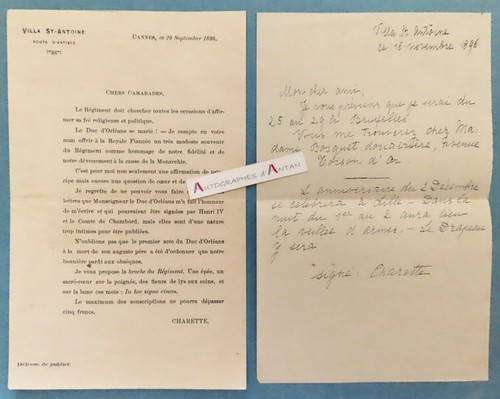 VILLA ST-ANTOINE
ROUTE D'ANTIBES
CANNES, ce 28 Septembre 1896.
CHERS CAMARADES,
Le Régiment doit chercher toutes les occasions d'affir-
mer sa foi religieuse et politique.
Le Duc d'Orléans se marie ! — Je compte en votre
nom offrir à la Royale Fiancée un très modeste souvenir
du Régiment comme hommage de notre fidélité et de
notre dévouement à la cause de la Monarchie.
C'est pour moi non seulement une affirmation de
cipe mais encore une question de cœur et de
Je regrette de ne pouvoir vous faire
lettres que Monseigneur le Duc d'Orléans m'a fait l'honneur
de m'écrire et qui pourraient être signées par Henri IV
et le Comte de Chambord, mais elles sont d'une nature
trop intimes pour être publiées.
N'oublions pas que le premier acte du Duc d'Orléans
à la mort de son auguste père a été d'ordonner que notre
bannière parût aux obsèques.
Je vous propose la broche du Régiment. Une épée, un
sacré-cœur sur la poignée, des fleurs de lys aux coins, et
sur la lame ces mots : In hoc signo vinces.
Le maximum des souscriptions ne pourra dépasser
cinq francs.
CHARETTE.
Défense de publier.
AUTOGRAPHES d'ANTAN
Villa St. Antoine
ce 15 novembre 1896
Mon cher ami,
Je vous préviens que je serai du
25 au 29 à Bruxelles
Vous me trouverez chez Ma
dame Bosquet douairière, avenue
Toison d'Or
L'anniversaire du 2 Décembre
se célébrera à Lille - Dans la
nuit du 1er au 2 aura lieu
la veillée d'armes. - Le Drapeau
y sera
signé : Charette